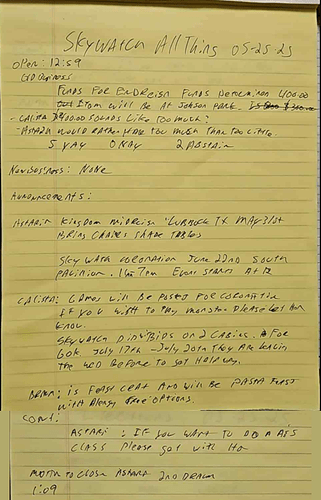 Skywatch All Thing 05-25-25
open: 12:59
Old Business
Funds for Endreign Funds Determined 400.00
Item will be at Jepson Park.
- Calista $400.00 sounds like too much?
- Astari would rather have too much than too little
5 yay 0 nay 2 abstain
New Business: None
Announcements:
Astari: Kingdom Midreign Lubbock TX May 31st
Bring Chairs Shade Tables
Sky watch coronation June 22nd South
Pavilion. 7pm Event starts at 12
Calista: Games will be posted for coronation
If you wish to play monster please let her
know.
Skywatch bids on 2 Cabins. For
July 17th - July 20th They are
the WED before to get
is feast crat and will be pasta feast
with Alergy free options.
Cont:
Astari: If you want to do a A&S
class please get with Her
Motion to close Astari 2nd
1:09